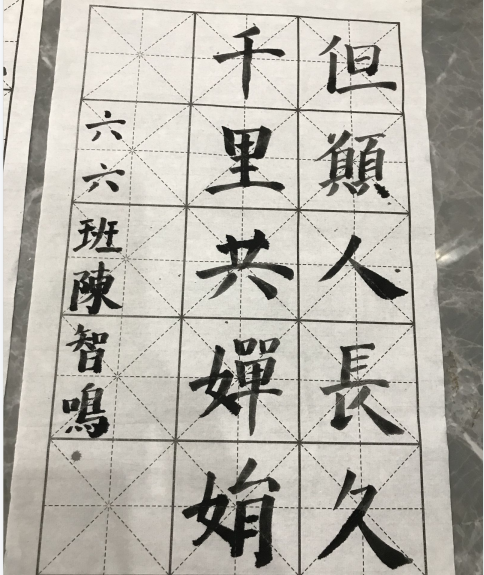 但願人長久
千里共嬋娟
六六班陳智鳴